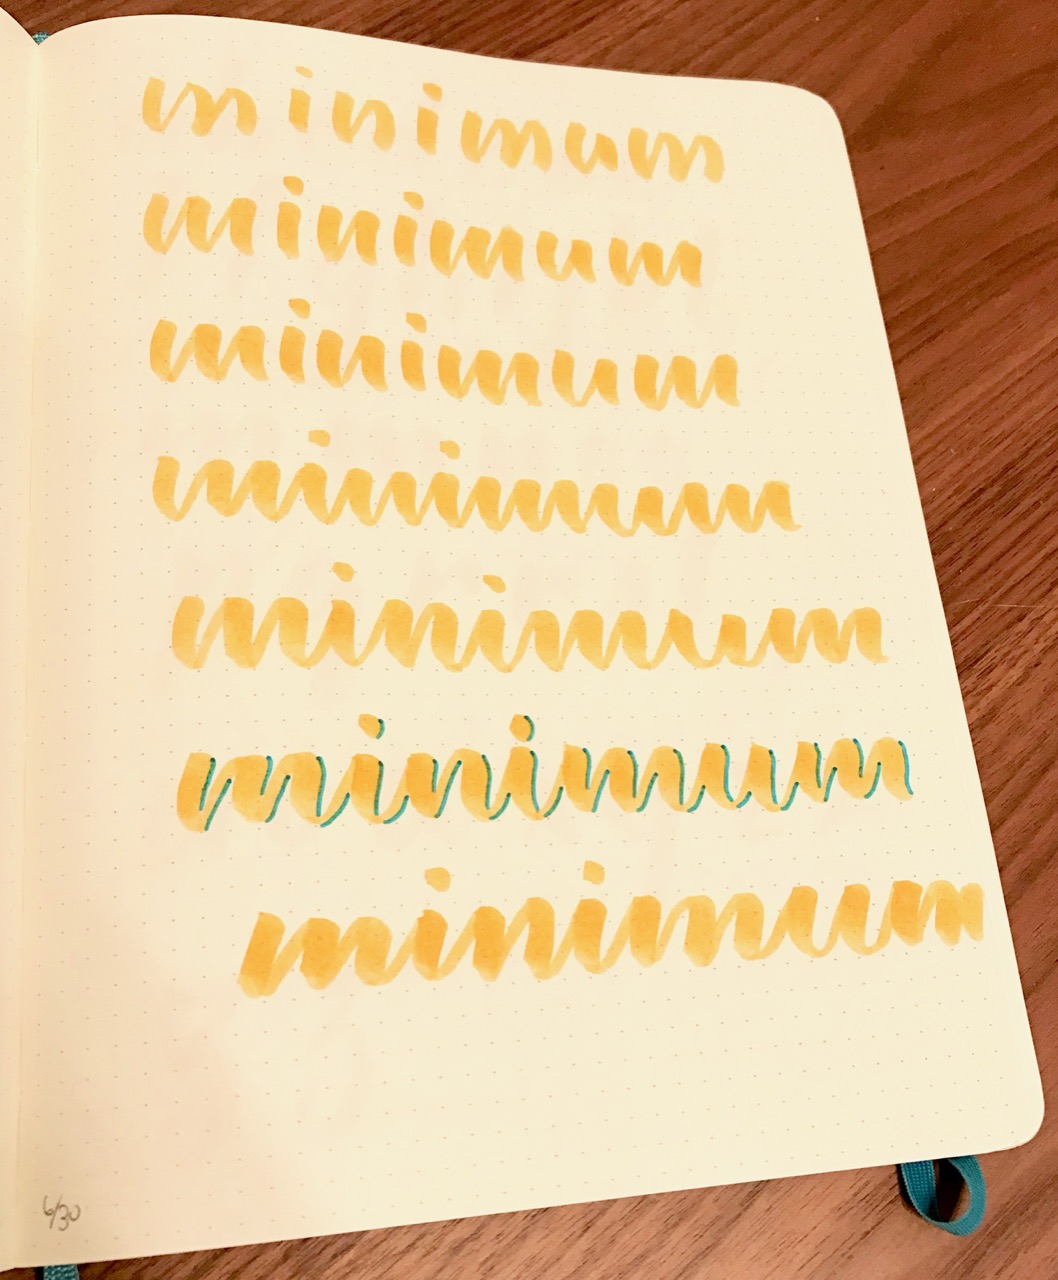 minimum
minimum
minimum
minimum
minimum
minimum
minimum
6/30